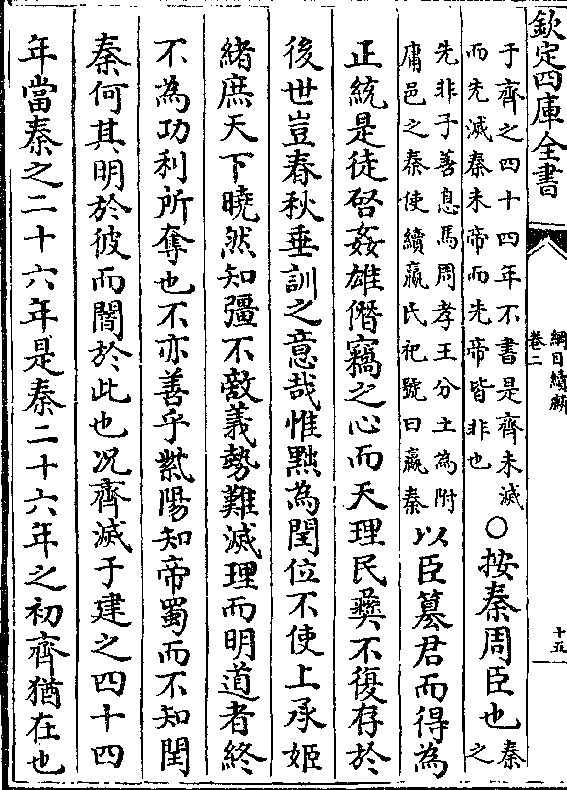 欽定四庫全書
綱目續麟
卷二
十五
于齊之四十四年不書是齊未滅
而先滅秦未帝而先帝皆非也
○按秦周臣也
秦之
先非子善息馬周孝王分土為附
庸邑之秦使續嬴氏祀號曰嬴秦
以臣簒君而得為
正統是徒啓姦雄僭竊之心而天理民彞不復存於
後世豈春秋垂訓之意哉惟黜為閏位不使上承姬
緒庶天下曉然知彊不敵義勢難滅理而明道者終
不為功利所奪也不亦善乎紫陽知帝蜀而不知閏
秦何其明於彼而闇於此也况齊滅于建之四十四
年當秦之二十六年是秦二十六年之初齊猶在也